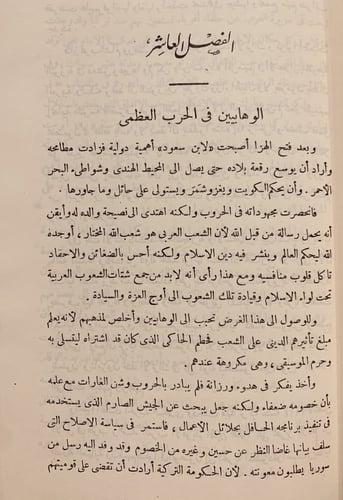 الفصل العاشر
الوهابيين فى الحرب العظمى
وبعد فتح الهزا أصبحت «لابن سعود» أهمية دولية فزادت مطامحه
وأراد أن يوسع رقعة بلاده حتى يصل الى المحيط الهندى وشواطىء البحر
الاحمر . وأن يحكم الكويت ويغزو شمر ويستولى على حائل وما جاورها .
فانحصرت مجهوداته فى الحروب ولكنه اهتدى الى نصيحة والده له وأيقن
أنه يحمل رسالة من قبل الله لأن الشعب العربى هو شعب الله المختار ، أوجده
الله ليحكم العالم وينشر فيه دين الاسلام ولكنه أحس بالضغائن والاحقاد
تاكل قلوب منافسيه ومع هذا رأى أنه لابد من جمع شتات الشعوب العربية
تحت لواء الاسلام وقيادة تلك الشعوب الى أوج العزة والسيادة .
وللوصول الى هذا الغرض تحبب الى الوهابيين وأخلص لمذهبهم لانه يعلم
مبلغ تأثيرهم الدينى على الشعب فحطم الحاكى الذى كان قد اشتراه ليتسلى به
وحرم الموسيقى ، وهى مكروهة عندهم .
وأخذ يفكر فى هدوء ورزانة فلم يبادر بالحروب وشن الغارات مع علمه
بأن خصومه ضعفاء ولكنه جعل يبحث عن الجيش الصارم الذى يستخدمه
فى تنفيذ برنامجه الحافل بجلائل الاعمال ، فاستمر فى سياسة الاصلاح التى
سلف بيانها غاضا النظر عن حسين وغيره من الخصوم وقد وفد اليه رسل من
سوريا يطلبون معونته . لأن الحكومة التركية أرادت أن تقضى على قوميتهم